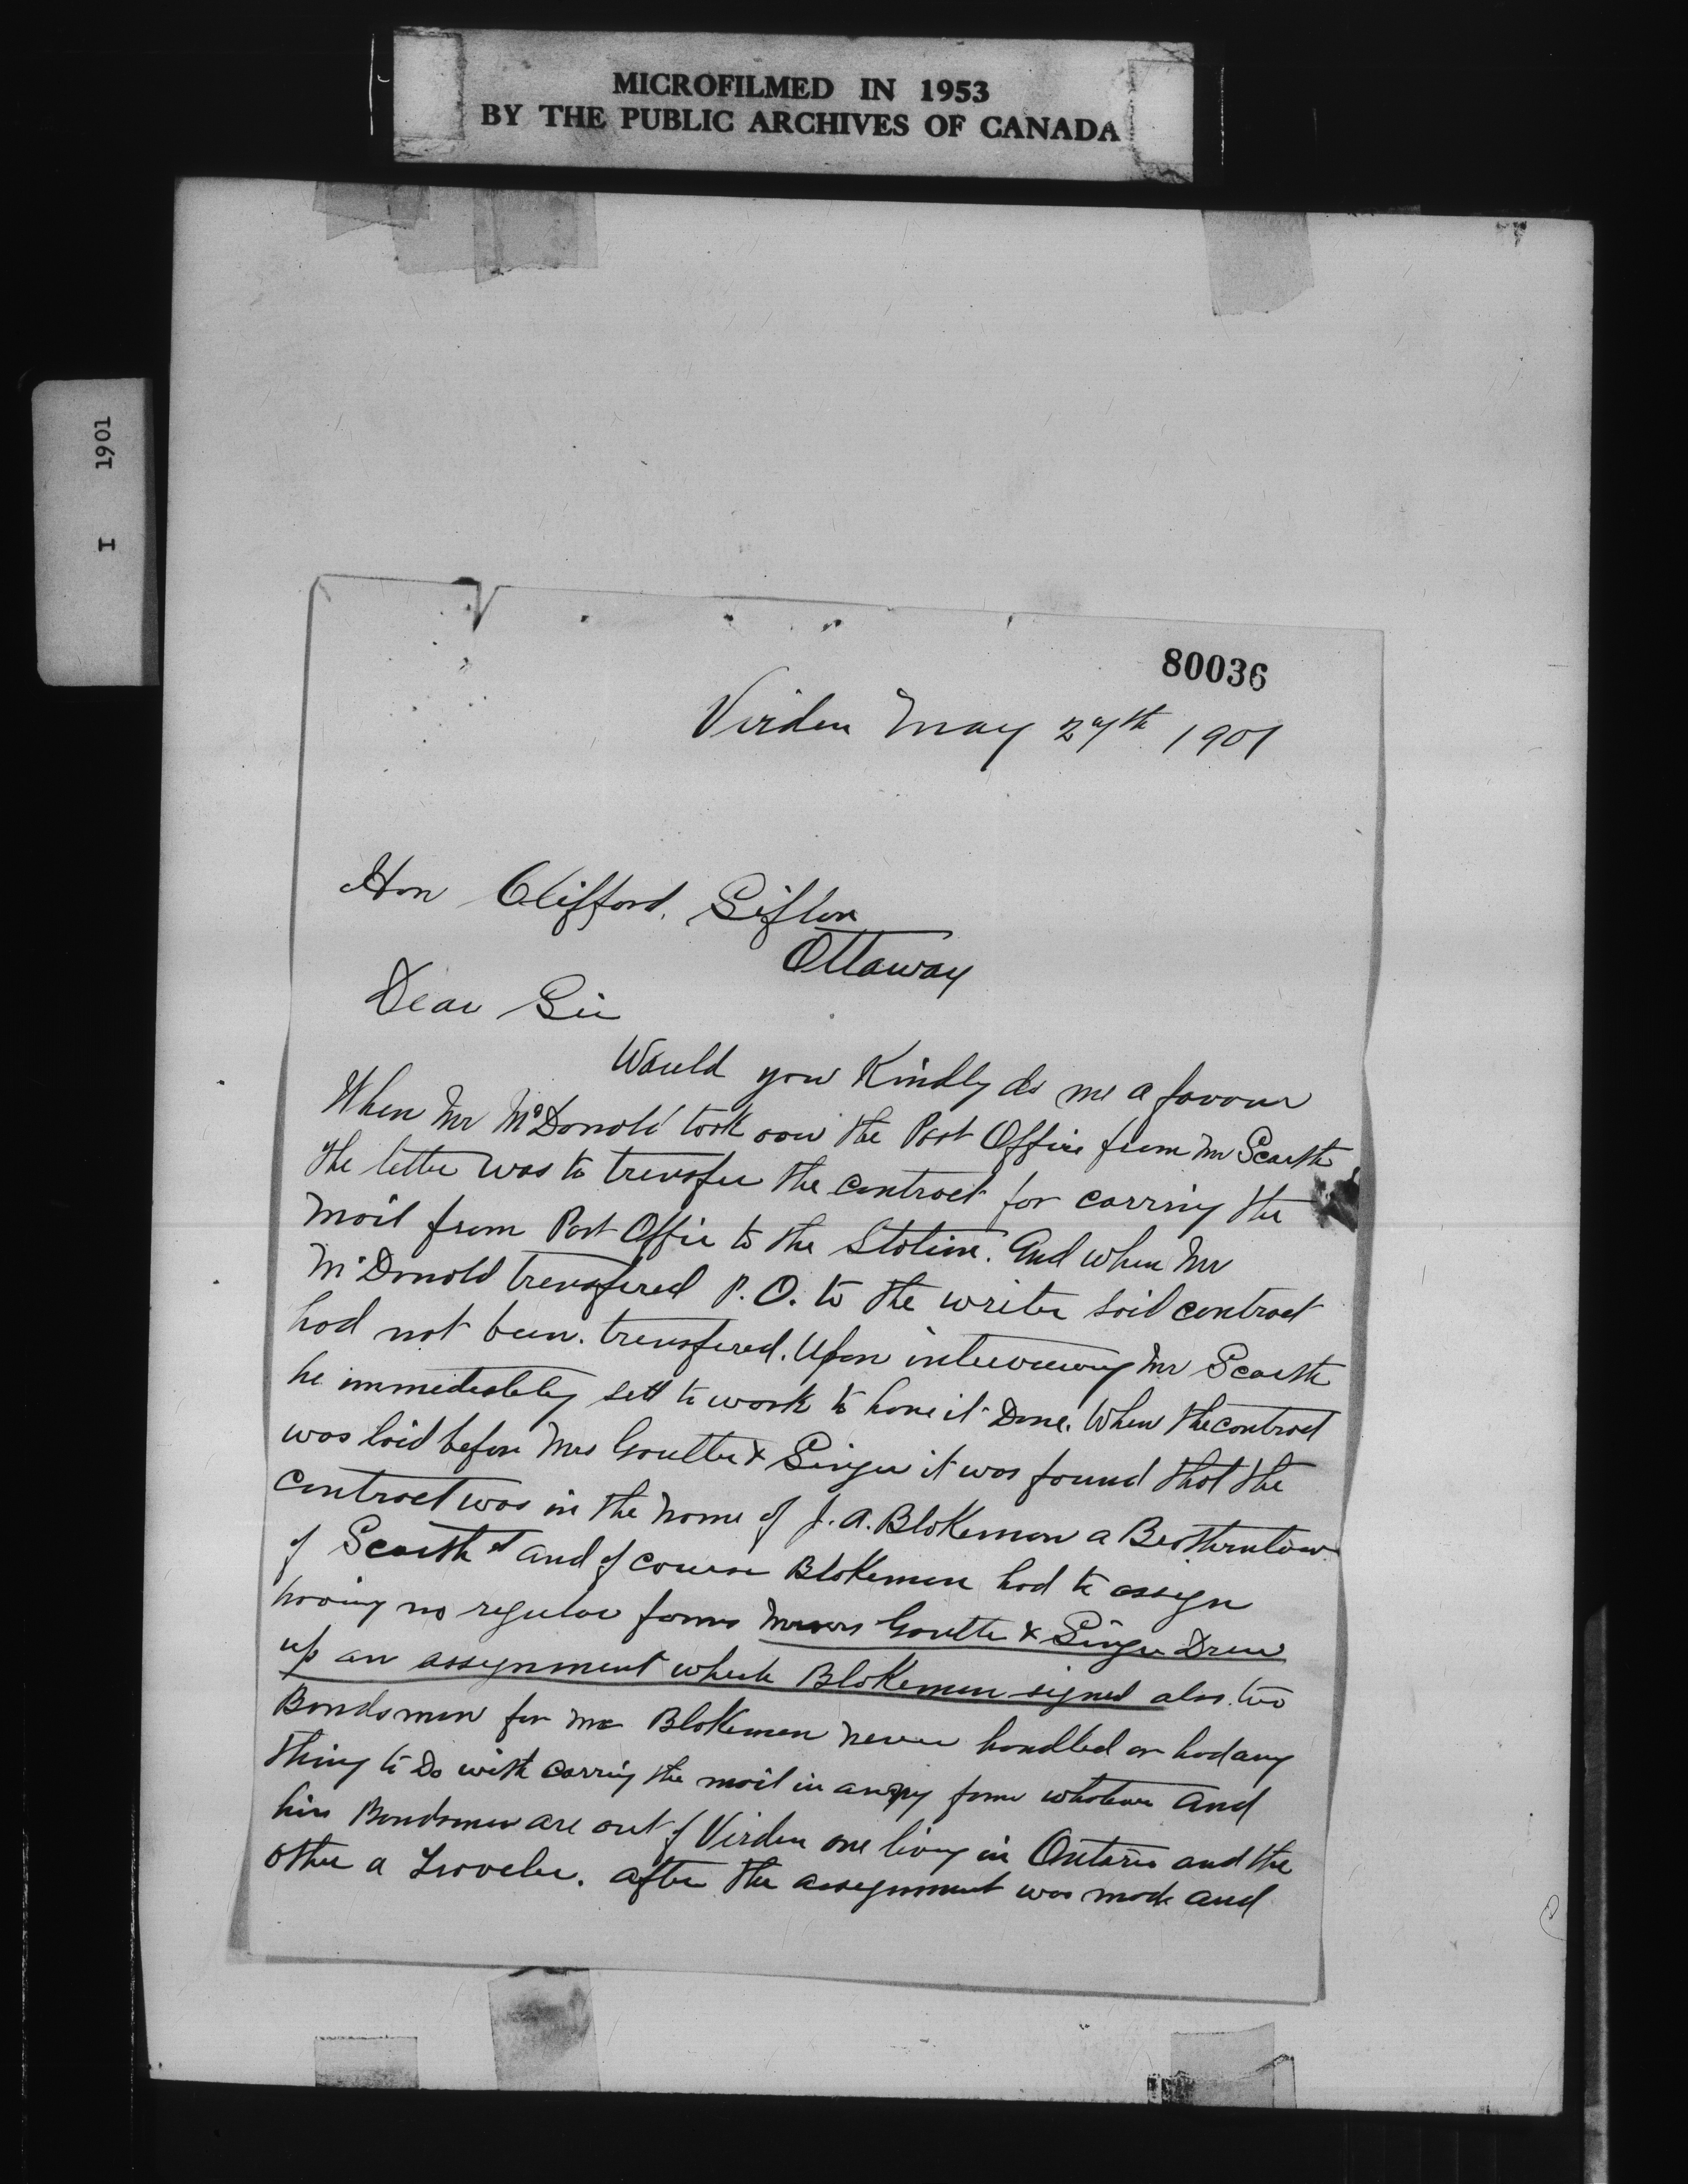 MICROFILMED IN 1953
BY THE PUBLIC ARCHIVES OF CANADA
I 1901
80036
Virden May 27th 1901
Hon Clifford. Sifton
Ottaway
Dear Sir
Would you Kindly do me a favour
When Mr McDonald took over the Post Office from Mr Scarth
the letter was to transfer the contract for carring the
mail from Post Office to the Station. And when Mr
McDonald transfered P.O. to the writer said contract
had not been. transfered. Upon interviewing Mr Scarth
he immediately sett to work to have it Done. When the contract
was laid before Mrs Goulter & Singer it was found that the
contract was in the name of J. A. Blakeman a Brotherinlaw
of Scarth and of course Blakeman had to assign
having no regular forms Messrs Goulter & Singer Drew
up an assignment which Blakeman signed also two
Bondsmen for me Blakeman never handled or had any
thing to Do with carring the mail in any form whatever and
his Bondsmen are out of Virden one living in Ontario and the
other a Traveler. after the assignment was made and